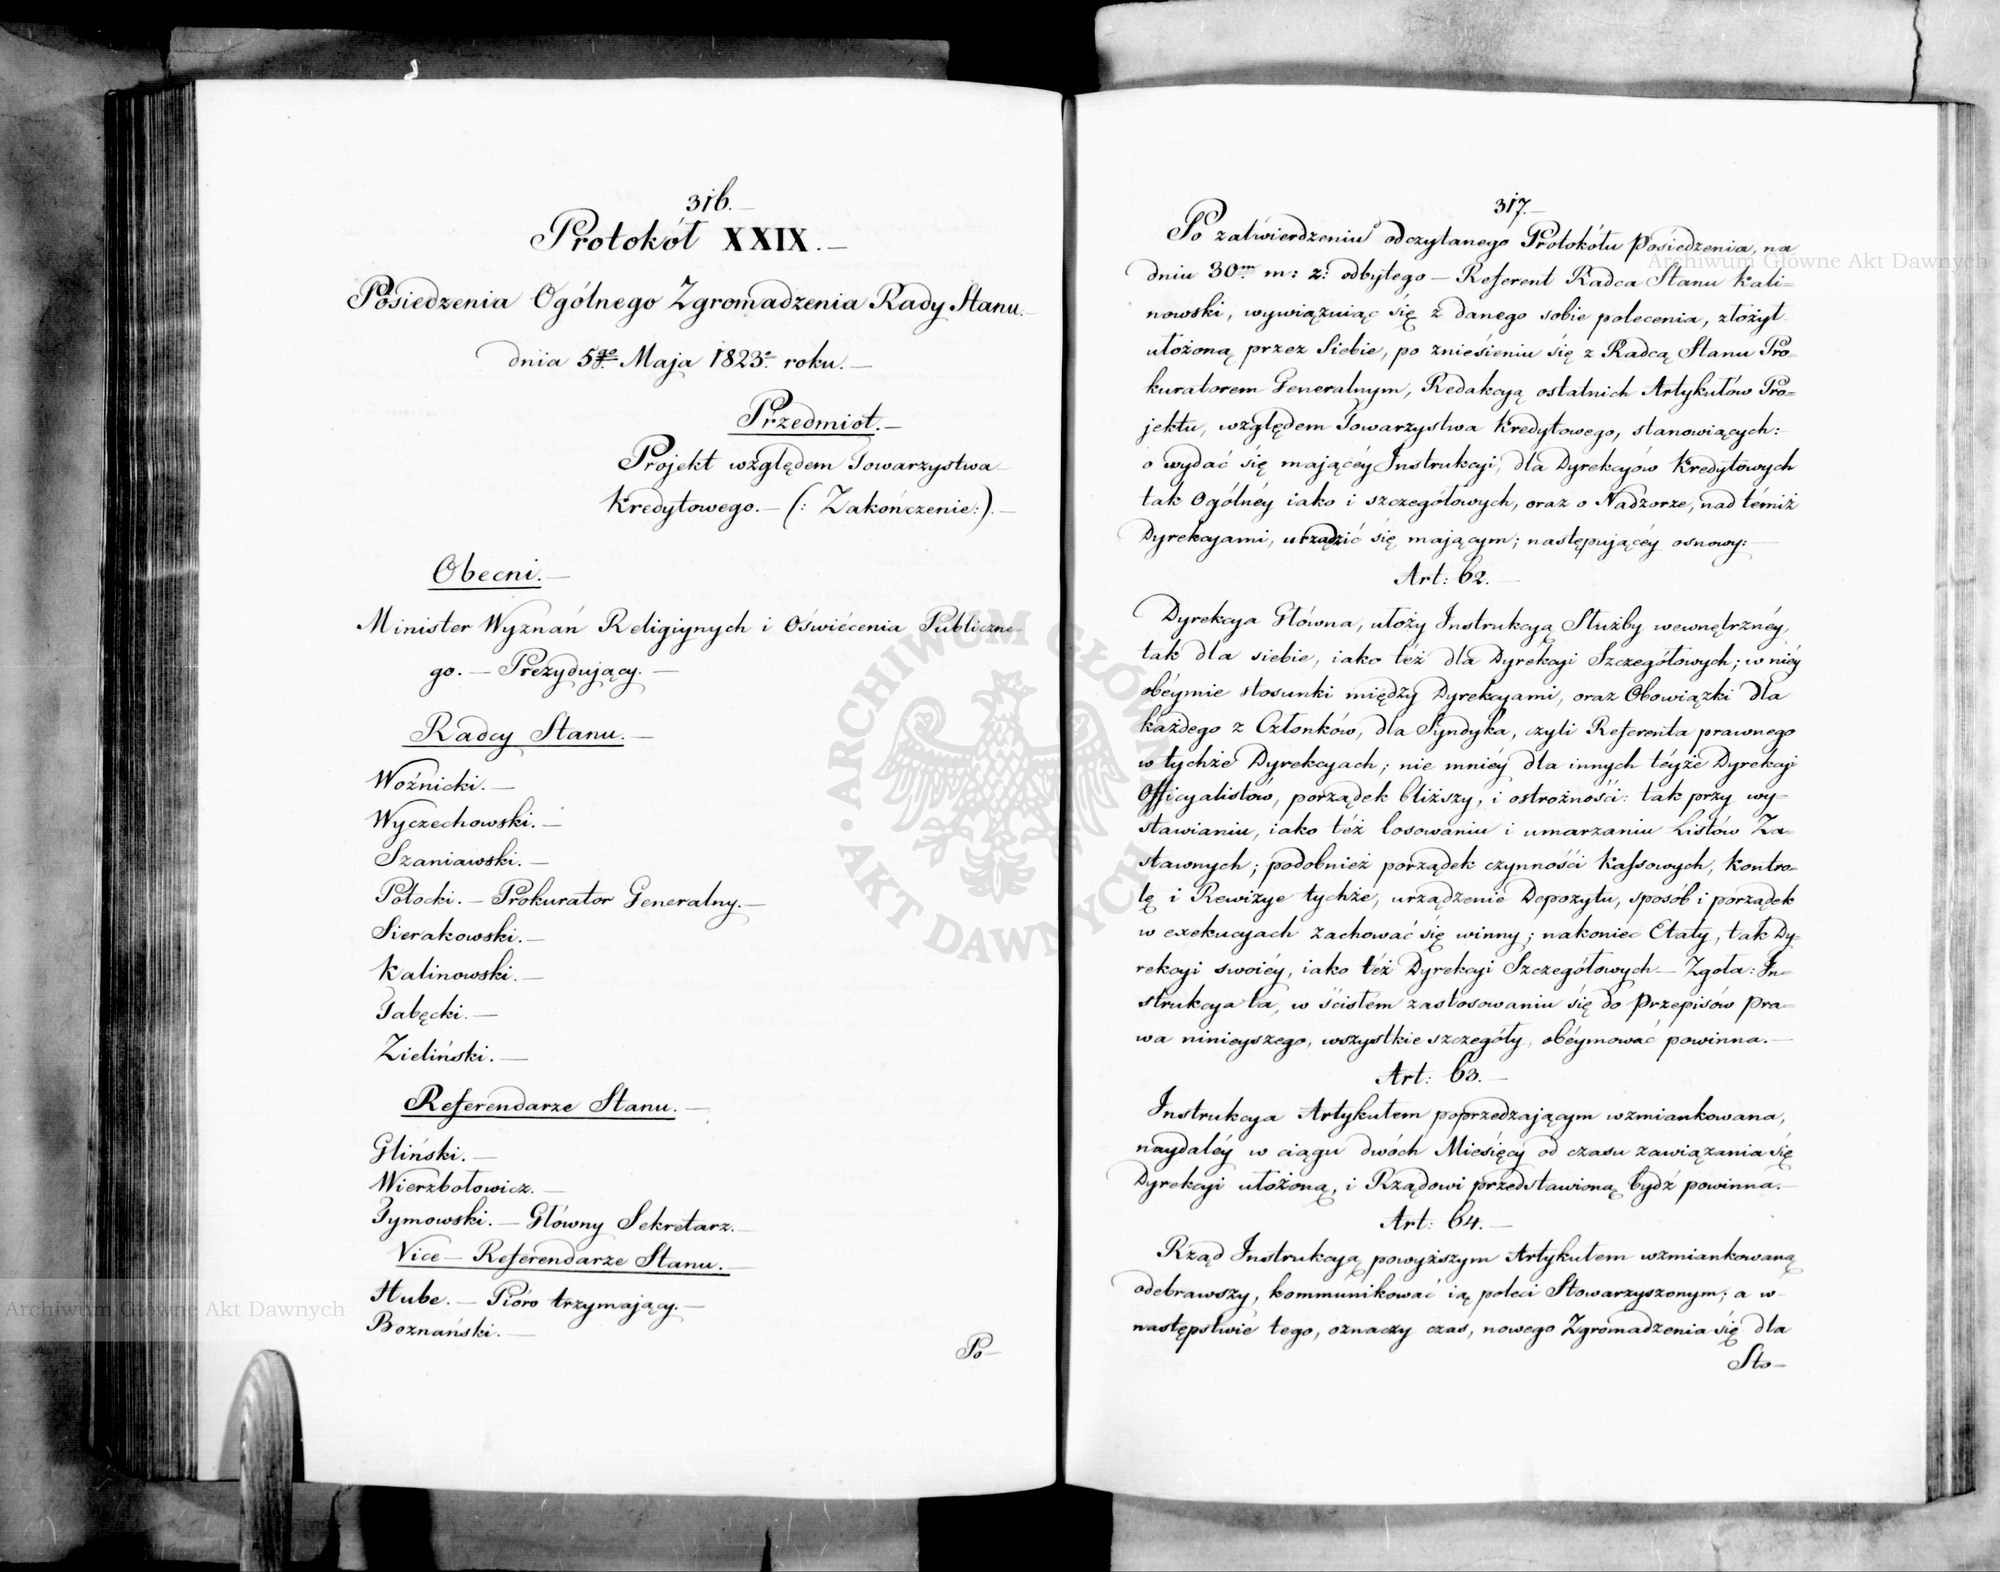 316.—
Protokół XXIX.—
Posiedzenia Ogólnego Zgromadzenia Rady Stanu.—
dnia 5go Maja 1823o roku.—
Przedmiot.—
Projekt względem Towarzystwa
Kredytowego.— (: Zakończenie:).—
Obecni.—
Minister Wyznań Religiynych i Oświécenia Publiczne-
go.— Prezydujący.—
Radcy Stanu.—
Woźnicki.—
Wyczechowski.—
Szaniawski.—
Potocki.— Prokurator Generalny.—
Sierakowski.—
Kalinowski.—
Tabęcki.—
Zieliński.—
Referendarze Stanu.—
Gliński.—
Wierzbołowicz.—
Tymowski.— Główny Sekretarz.—
Vice— Referendarze Stanu.—
Hube.— Pióro trzymający.—
Boznański.—
Po—
317.—
Po zatwierdzeniu odczytanego Protokółu posiedzenia, na
dniu 30m m: z: odbytego — Referent Radca Stanu Kali-
nowski, wywiązuiąc się z danego sobie polecenia, złożył
ułożoną przez Siebie, po zniesieniu się z Radcą Stanu Pro-
kuratorem Generalnym, Redakcyą ostatnich Artykułów Pro-
jektu, względem Towarzystwa Kredytowego, stanowiących:
o wydać się maiącéy Instrukcyi, dla Dyrekcyów Kredytowych
tak Ogólnéy iako i szczegółowych, oraz o Nadzorze, nad témiż
Dyrekcyami, urządzić się mającym; następującéy osnowy:—
Art: 62.—
Dyrekcya Główna, ułoży Instrukcyą Służby wewnętrznéy,
tak dla siebie, iako téż dla Dyrekcyi Szczegółowych; w niéy
obéymie stosunki między Dyrekcyami, oraz Obowiązki dla
każdego z Członków, dla Syndyka, czyli Referenta prawnego
w tychże Dyrekcyach; nie mniéy dla innych téyże Dyrekcyi
Officyalistów, porządek bliższy, i ostrożności: tak przy wy-
stawianiu, iako téż losowaniu i umarzaniu Listów Za-
stawnych; podobnież porządek czynności Kassowych, Kontro-
lę i Rewizye tychże, urządzenie Depozytu, sposób i porządek
w exekucyach zachować się winny; nakoniec Etaty, tak Dy-
rekcyi swoiéy, iako téż Dyrekcyi Szczegółowych — Zgoła: In-
strukcya ta, w ścisłém zastosowaniu się do Przepisów Pra-
wa ninieyszego, wszystkie szczegóły, obéymować powinna.—
Art: 63.—
Instrukcya Artykułem poprzedzającym wzmiankowana,
naydaléy w ciągu dwóch Miesięcy od czasu zawiązania się
Dyrekcyi ułożoną, i Rządowi przedstawioną bydź powinna.—
Art: 64.—
Rząd Instrukcyą powyższym Artykułem wzmiankowaną
odebrawszy, kommunikować ią poleci Stowarzyszonym; a w
następstwie tego, oznaczy czas, nowego Zgromadzenia się dla
Sto—
Archiwum Główne Akt Dawnych
Archiwum Główne Akt Dawnych
ARCHIWUM GŁÓWNE AKT DAWNYCH